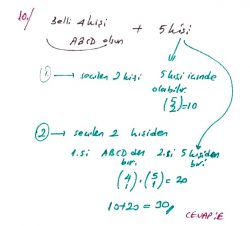 10./ Belli 4 kişi + 5 kişi
ABCD olsun
1 → seçilen 2 kişi 5 kişi içinde
olabilir.
(5 2) = 10
2 → seçilen 2 kişiden
1.si ABCD den 2.si 5 kişiden
biri. biri
(4 1) . (5 1) = 20
10+20 = 30
CEVAP: E